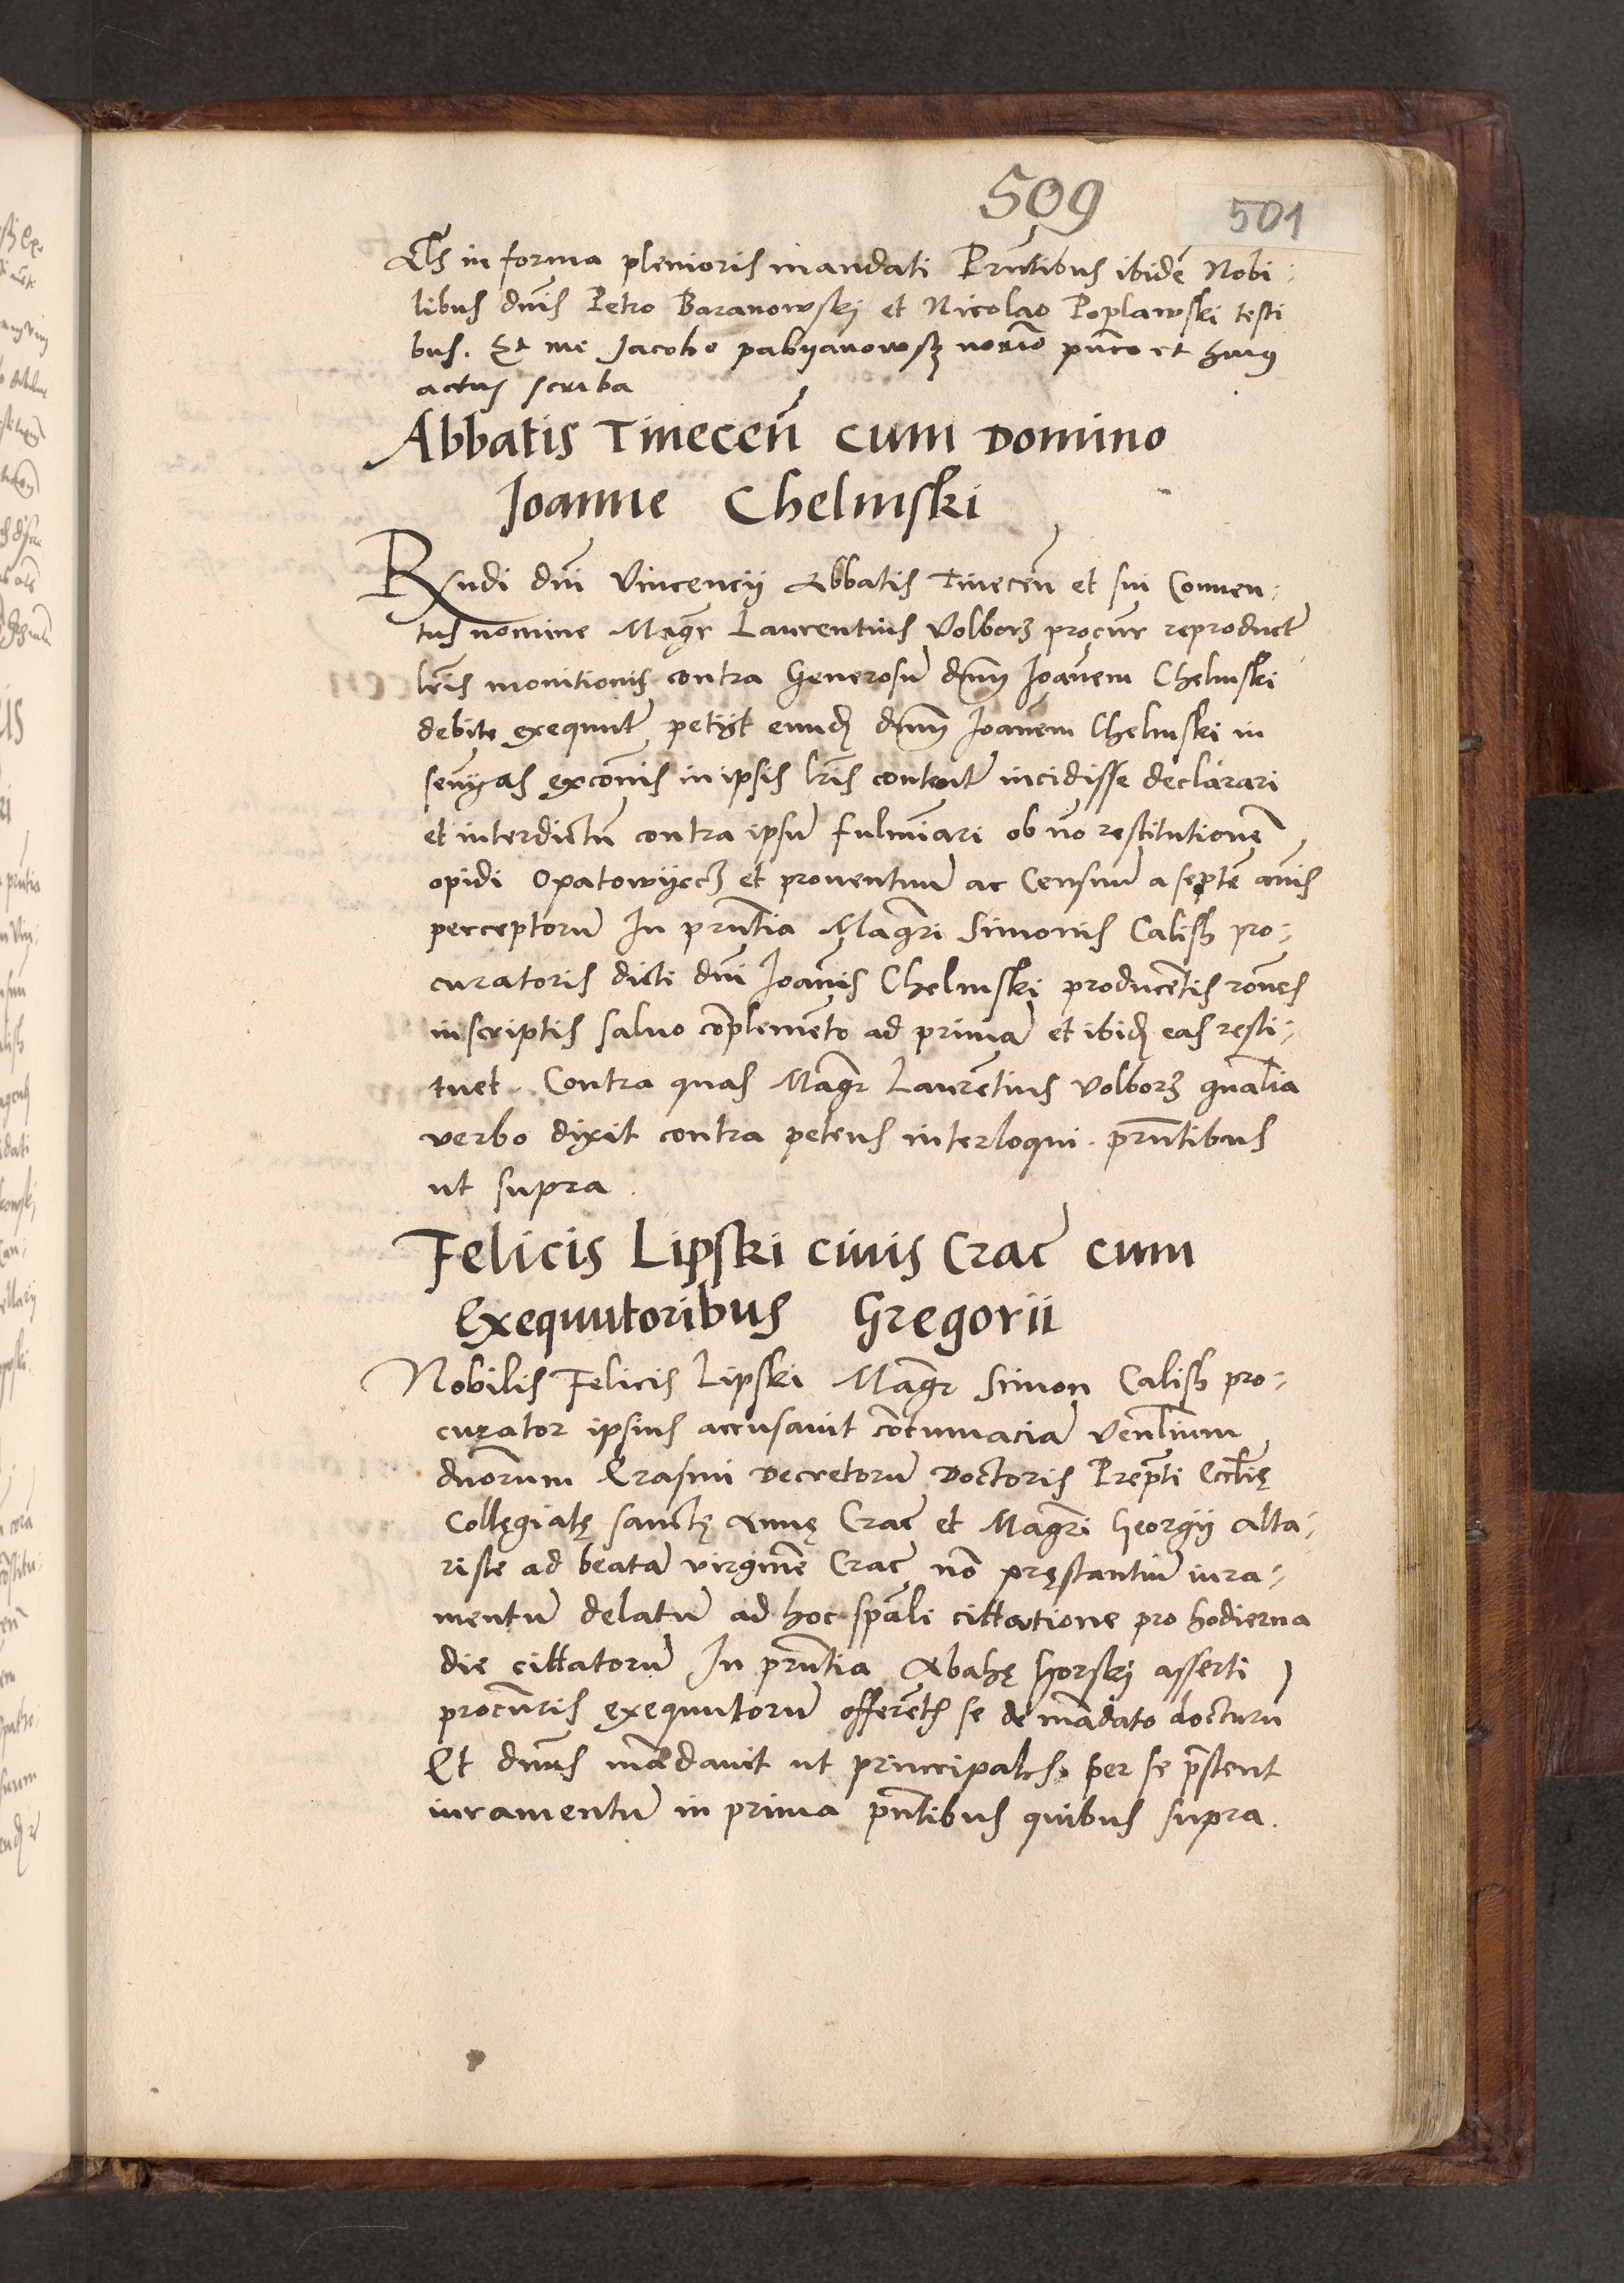 509
501
Als in forma plenioris mandati Pruntibus ibidē Nobi-
libus dnis Petro Baranowskj et Nicolao Poplawski testi
bus. Et me Jacobo pabyanowsky norio pūco et huius
actus scriba
Abbatis Tinecen̄ cum Domino
Joanne Chelmski
Rndi dni Vincencij Abbatis Tinecen̄ et sui Conuen-
tus nomine Magr Laurentius Volborz procur reproductis
lris monitionis contra Generosū dnum Joānem Chelmski
debite exequut petijt eundē dnum Joānem Chelmski in
sen̄ijas excōnis in ipsis lris content incidisse declarari
et interdictū contra ipsum fulmīari ob nō restitutionē
opidi Opatowyecz et prouentuū ac Censuū a septē annis
perceptorū In prūtia Magri Simonis Calish pro-
curatoris dicti dni Joānis Chelmski producētis rōnes
in scriptis saluo cōplemēto ad primā et ibidē eas resti-
tuet. Contra quas Magr Laurētius Volborz gnalia
verbo dixit contra petens interloqui. prūtibus
ut supra.
Felicis Lipski ciuis Crac cum
Exequutoribus Gregorii
Nobilis Felicis Lipski Magr Simon Calish pro-
curator ipsius accusauit cōtumaciā Venlium
dnorum Erasmi Decretorū Doctoris Prepti Ecclię
Collęgiatę sanctę Annę Crac et Magri Georgij Alta-
riste ad beatā virginē Crac nō pręstantiū iura-
mentū delatū ad hoc spāli cittatione pro hodierna
die cittatorū In prūtia Abahę Gorskj asserti
procuris exequutorū offerētis se de mādato docturū
Et dnus mādauit ut principales per se prstent
iuramentū in prima pn̄tibus quibus supra.